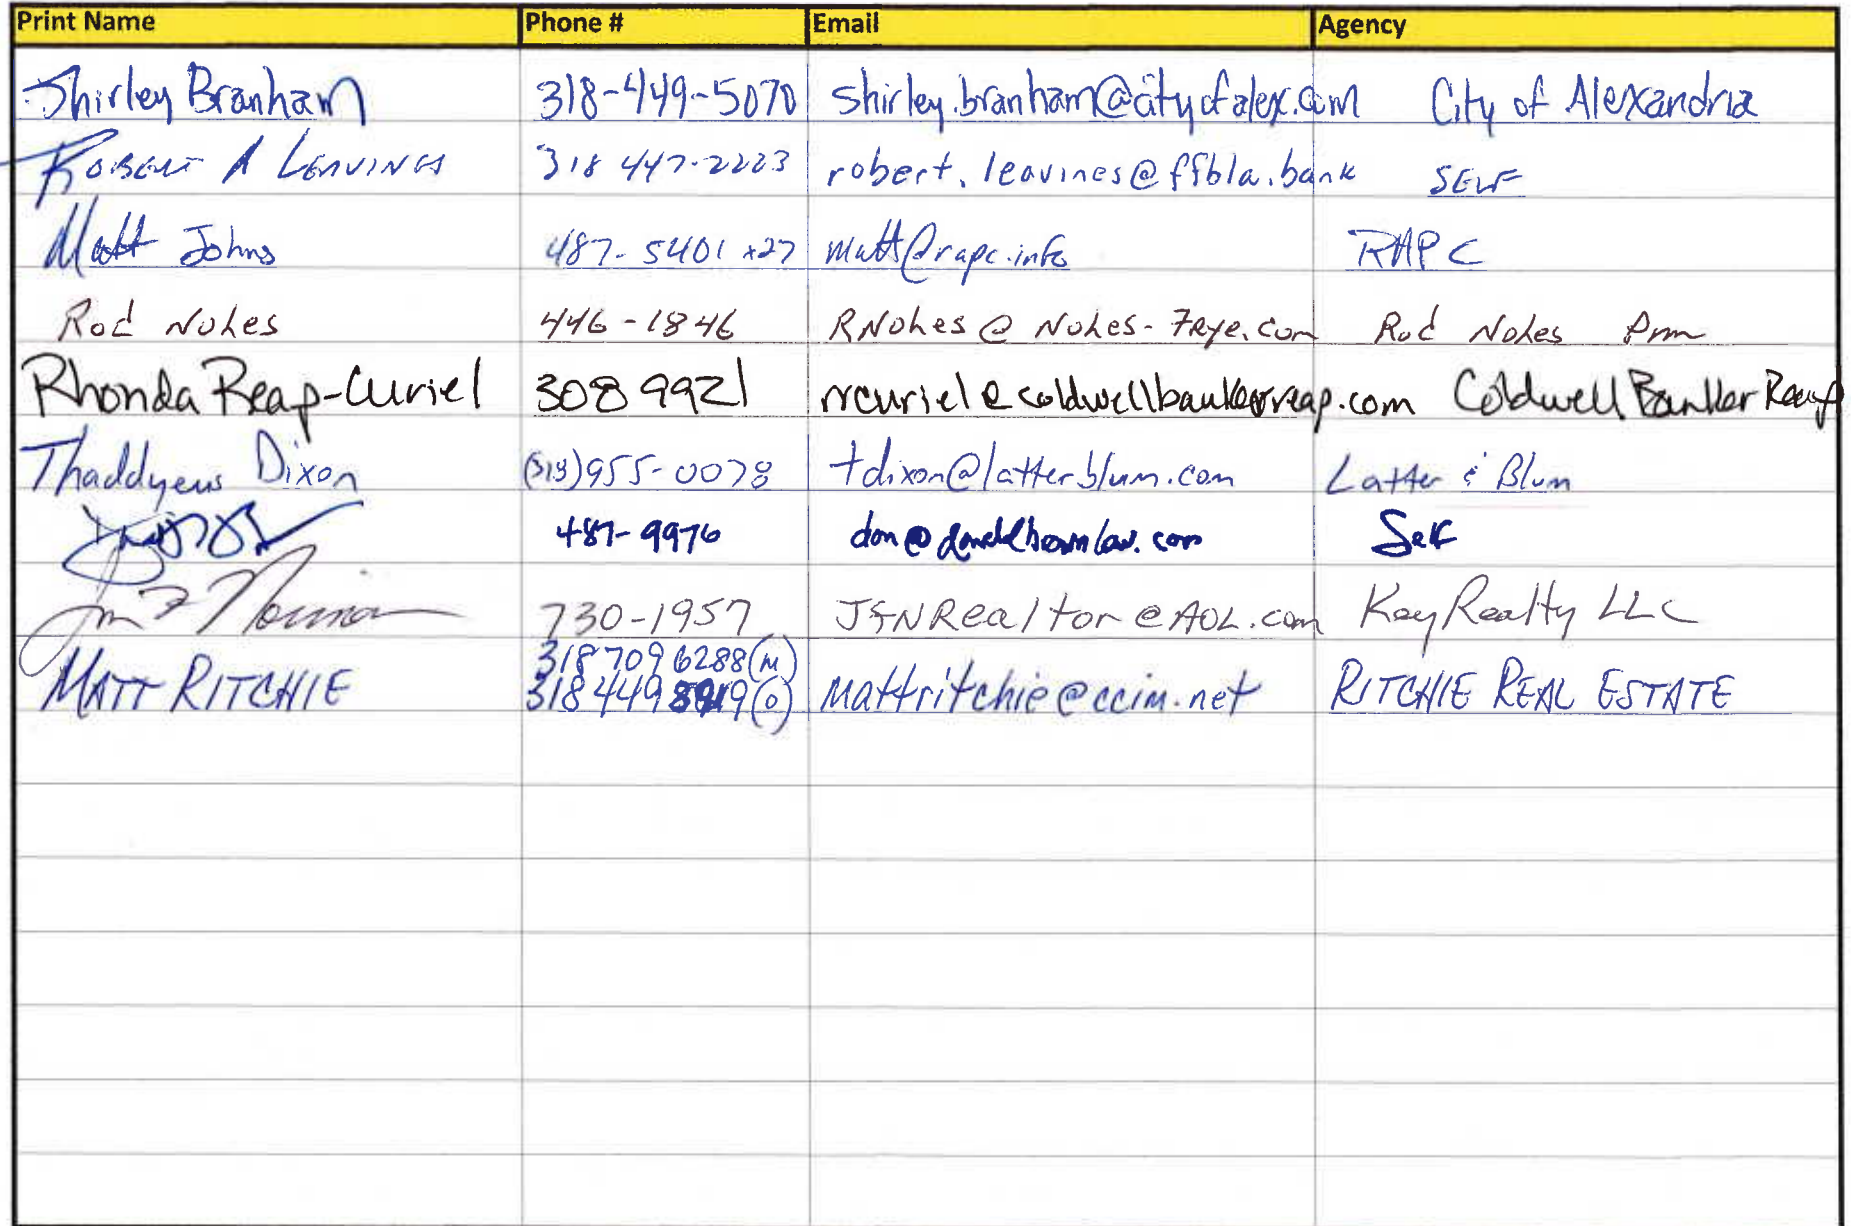 Print Name Phone # Email Agency
Shirley Branham 318-449-5070 shirley.branham@cityofalex.com City of Alexandria
Robert A Leavines 318 447-2223 robert.leavines@ffbla.bank SELF
Matt Johns 487-5401 x27 matt@rapc.info RAPC
Rod Nokes 446-1846 RNokes@Nokes-Frye.com Rod Nokes
Rhonda Reap-Curiel 308 9921 rrcuriel@coldwellbankerreap.com Coldwell Banker Reap
Thaddyeus Dixon (318)955-0078 tdixon@latterblum.com Latter & Blum
487-9976 Self
Norman 730-1957 JFNRealtor@AOL.com Key Realty LLC
318 709 6288(m)
MATT RITCHIE 318 449 (o) mattritchie@ccim.net RITCHIE REAL ESTATE